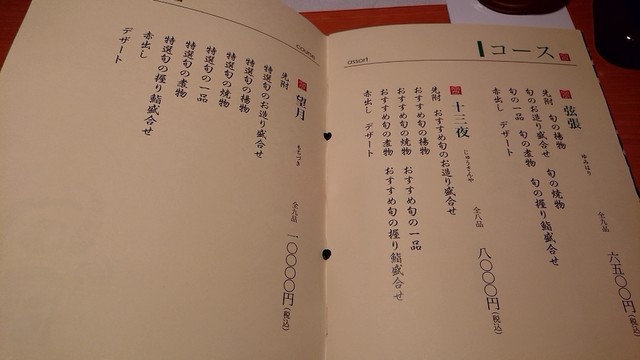 コース
assort
弦張
ゆみはり
全九品
六五〇〇円(税込)
先附 旬の揚物
旬のお造り盛合せ 旬の焼物
旬の一品 旬の煮物 旬の握り鮨盛合せ
赤出し デザート
十三夜
じゅうさんや
全八品
八〇〇〇円(税込)
先附 おすすめ旬のお造り盛合せ
おすすめ旬の揚物
おすすめ旬の焼物 おすすめ旬の一品
おすすめ旬の煮物 おすすめ旬の握り鮨盛合せ
赤出し デザート
望月
もちづき
全九品
一〇〇〇〇円(税込)
先附
特選旬のお造り盛合せ
特選旬の揚物
特選旬の焼物
特選旬の一品
特選旬の煮物
特選旬の握り鮨盛合せ
赤出し
デザート